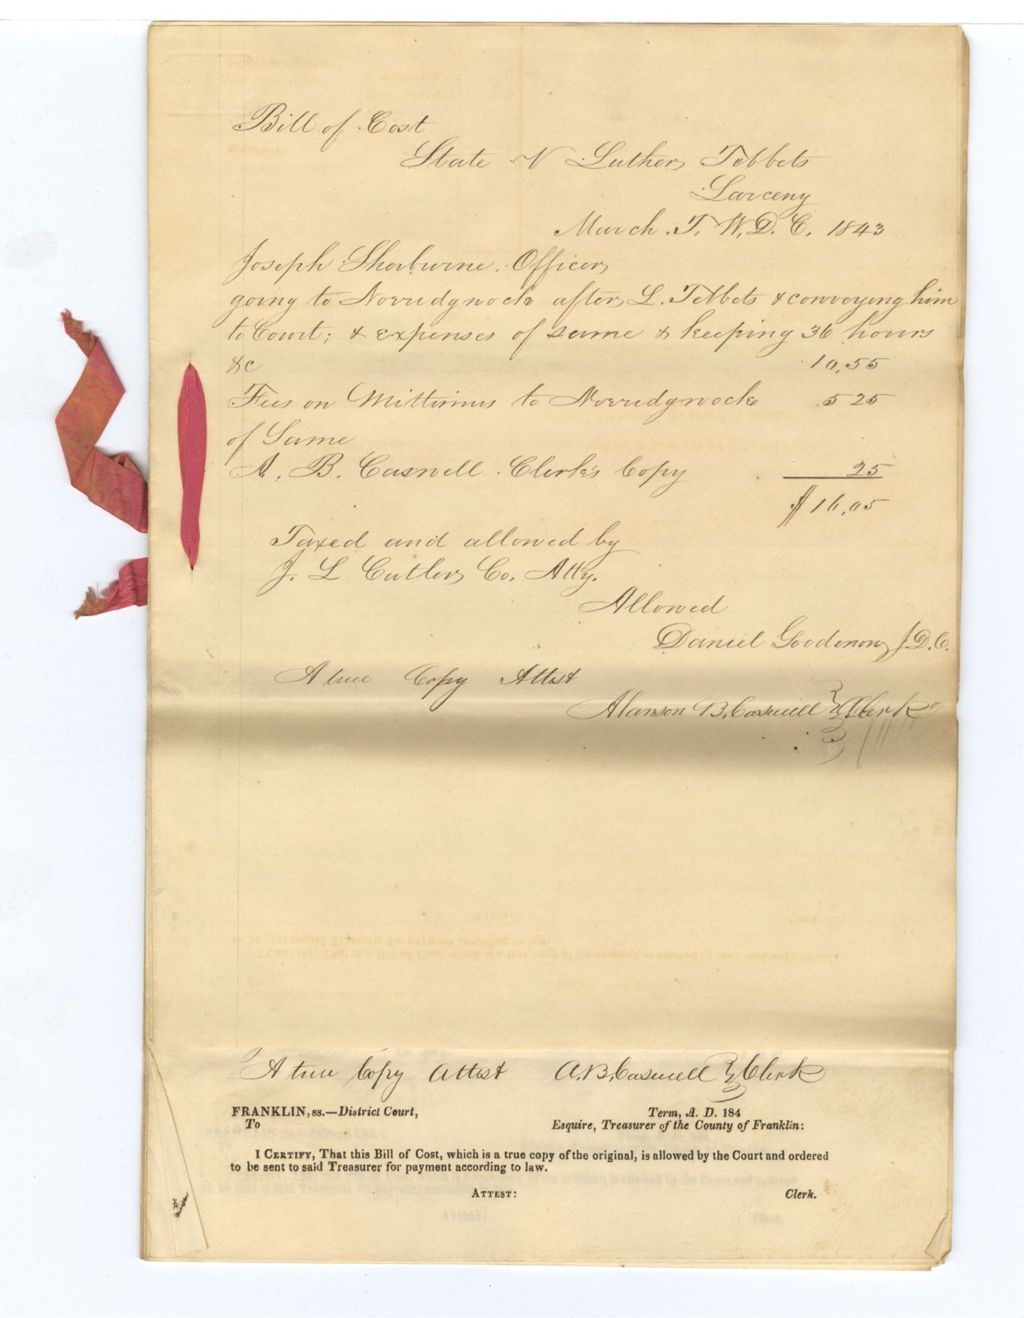 Bill of Cost
State v Luther Tebbets
Larceny
March. T. W. D. C. 1843
Joseph Sherburne. Officer
going to Norridgwock after L. Tebbets & convoying him
to Court; & expenses of same & keeping 36 hours
&c 10,55
Fees on Mittimus to Norridgwock 5 25
of Same
A. B. Caswell Clerk's Copy 25
$16,05
Taxed and allowed by
J. L Cutler, Co. Atty.
Allowed
Daniel Goodenow J. D. C.
A true Copy Attest
Alanson B. Caswell Clerk
A true Copy Attest A. B. Caswell Clerk
FRANKLIN, ss.—District Court, Term, A. D. 184
To Esquire, Treasurer of the County of Franklin:
I CERTIFY, That this Bill of Cost, which is a true copy of the original, is allowed by the Court and ordered
to be sent to said Treasurer for payment according to law.
ATTEST: Clerk.